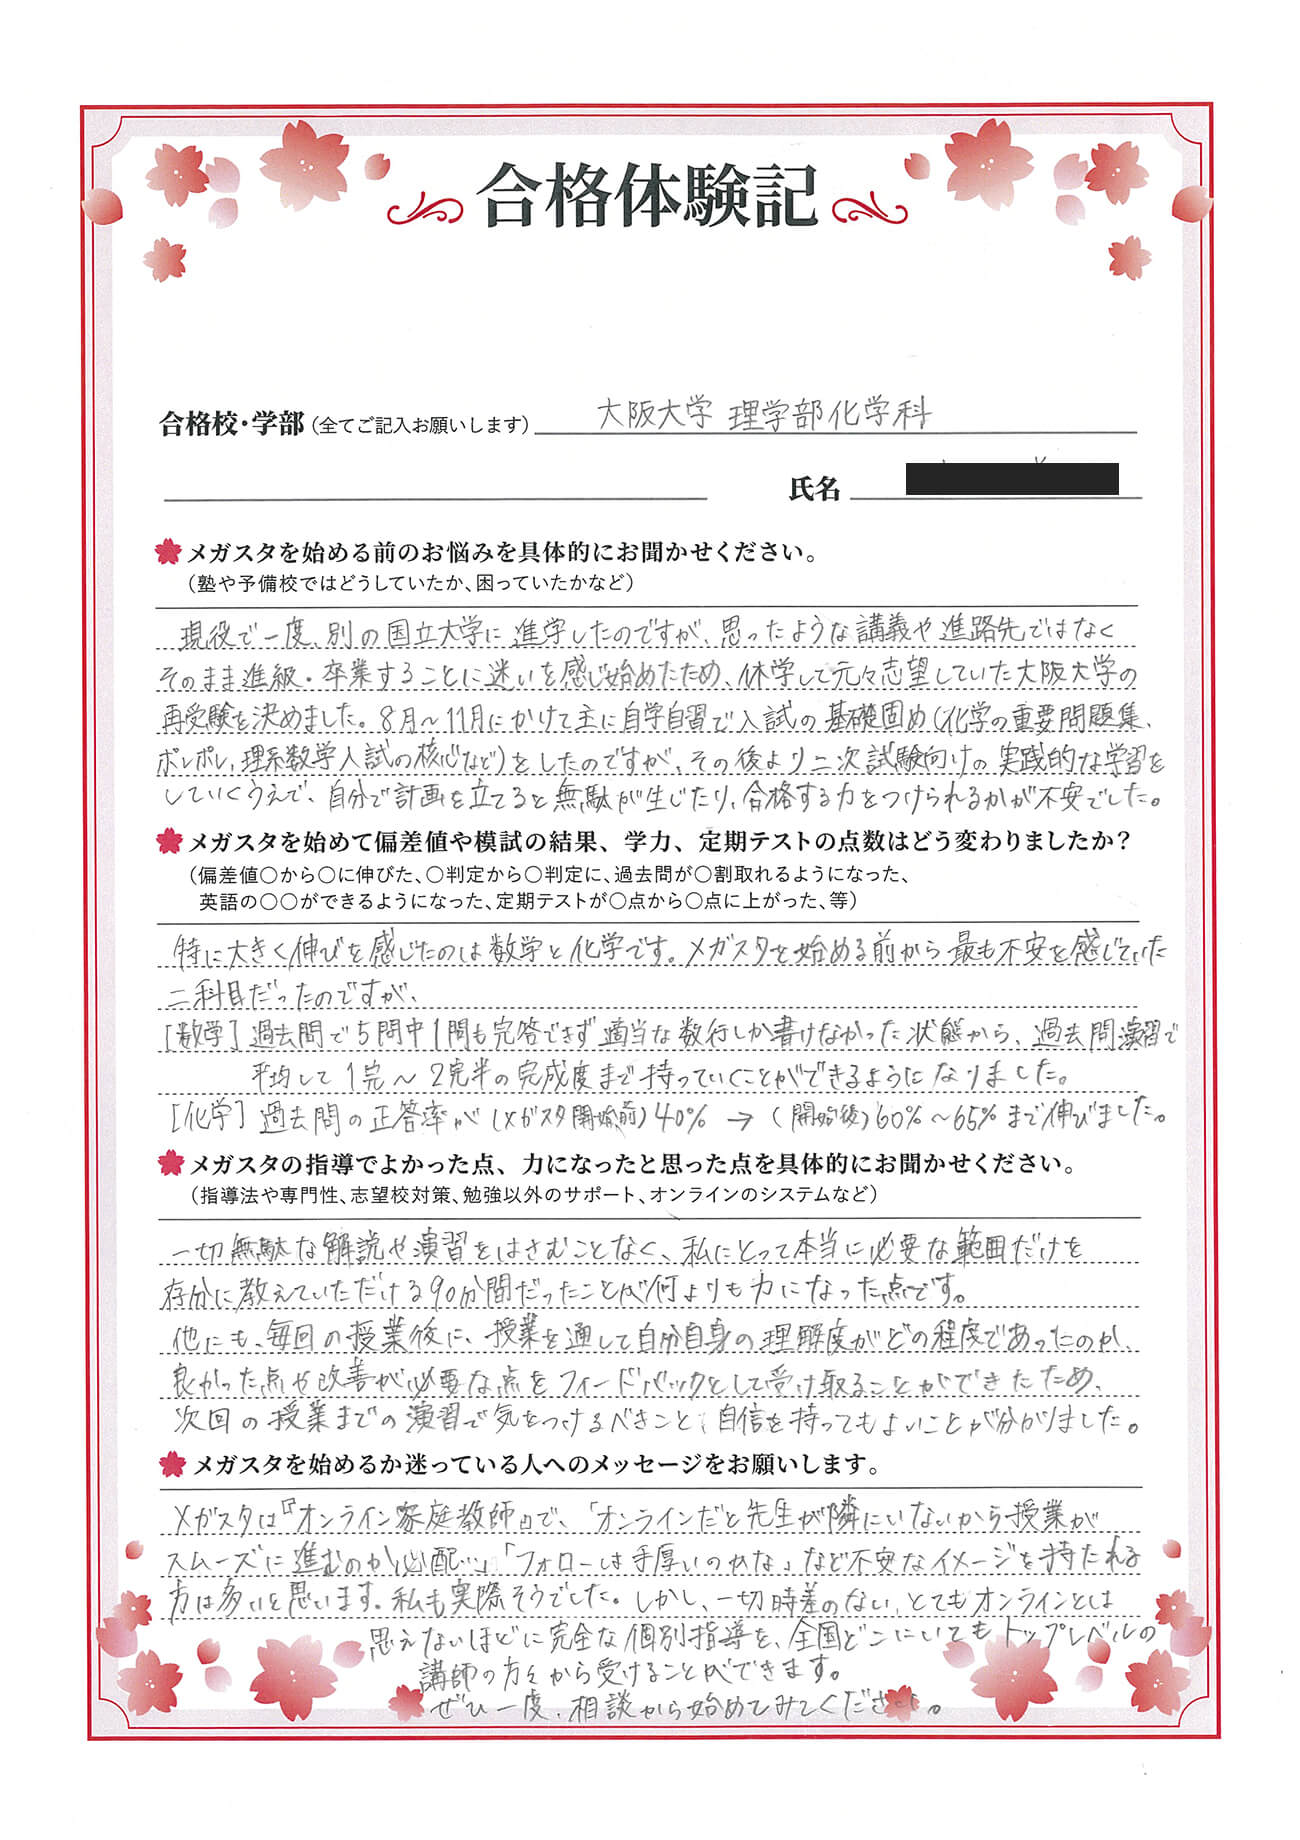 合格体験記
合格校・学部(全てご記入お願いします) 大阪大学 理学部化学科
氏名
メガスタを始める前のお悩みを具体的にお聞かせください。
(塾や予備校ではどうしていたか、困っていたかなど)
現役で一度、別の国立大学に進学したのですが、思ったような講義や進路先ではなく
そのまま進級・卒業することに迷いを感じ始めたため、休学して元々志望していた大阪大学の
再受験を決めました。8月〜11月にかけて主に自学自習で入試の基礎固め(化学の重要問題集、
ポレポレ,理系数学入試の核心など)をしたのですが、その後より二次試験向けの実践的な学習を
していくうえで、自分で計画を立てると無駄が生じたり、合格する力をつけられるかが不安でした。
メガスタを始めて偏差値や模試の結果、学力、定期テストの点数はどう変わりましたか?
(偏差値〇から〇に伸びた、〇判定から〇判定に、過去問が〇割取れるようになった、
英語の〇〇ができるようになった、定期テストが〇点から〇点に上がった、等)
特に大きく伸びを感じたのは数学と化学です。メガスタを始める前から最も不安を感じていた
二科目だったのですが、
[数学]過去問で5問中1問も完答できず適当な数行しか書けなかった状態から、過去問演習で
平均して1完〜2完半の完成度まで持っていくことができるようになりました。
[化学]過去問の正答率が(メガスタ開始前)40%→(開始後)60%〜65%まで伸びました。
メガスタの指導でよかった点、力になったと思った点を具体的にお聞かせください。
(指導法や専門性、志望校対策、勉強以外のサポート、オンラインのシステムなど)
一切無駄な解説や演習をはさむことなく、私にとって本当に必要な範囲だけを
存分に教えていただける90分間だったことが何よりも力になった点です。
他にも、毎回の授業後に、授業を通して自分自身の理解度がどの程度であったのか、
良かった点や改善が必要な点をフィードバックとして受け取ることができたため、
次回の授業までの演習で気をつけるべきこと、自信を持ってもよいことが分かりました。
メガスタを始めるか迷っている人へのメッセージをお願いします。
メガスタは『オンライン家庭教師』で、「オンラインだと先生が隣にいないから授業が
スムーズに進むのか心配…」「フォローは手厚いのかな」など不安なイメージを持たれる
方は多いと思います。私も実際そうでした。しかし、一切時差のない、とてもオンラインとは
思えないほどに完全な個別指導を、全国どこにいてもトップレベルの
講師の方々から受けることができます。
ぜひ一度、相談から始めてみてください。